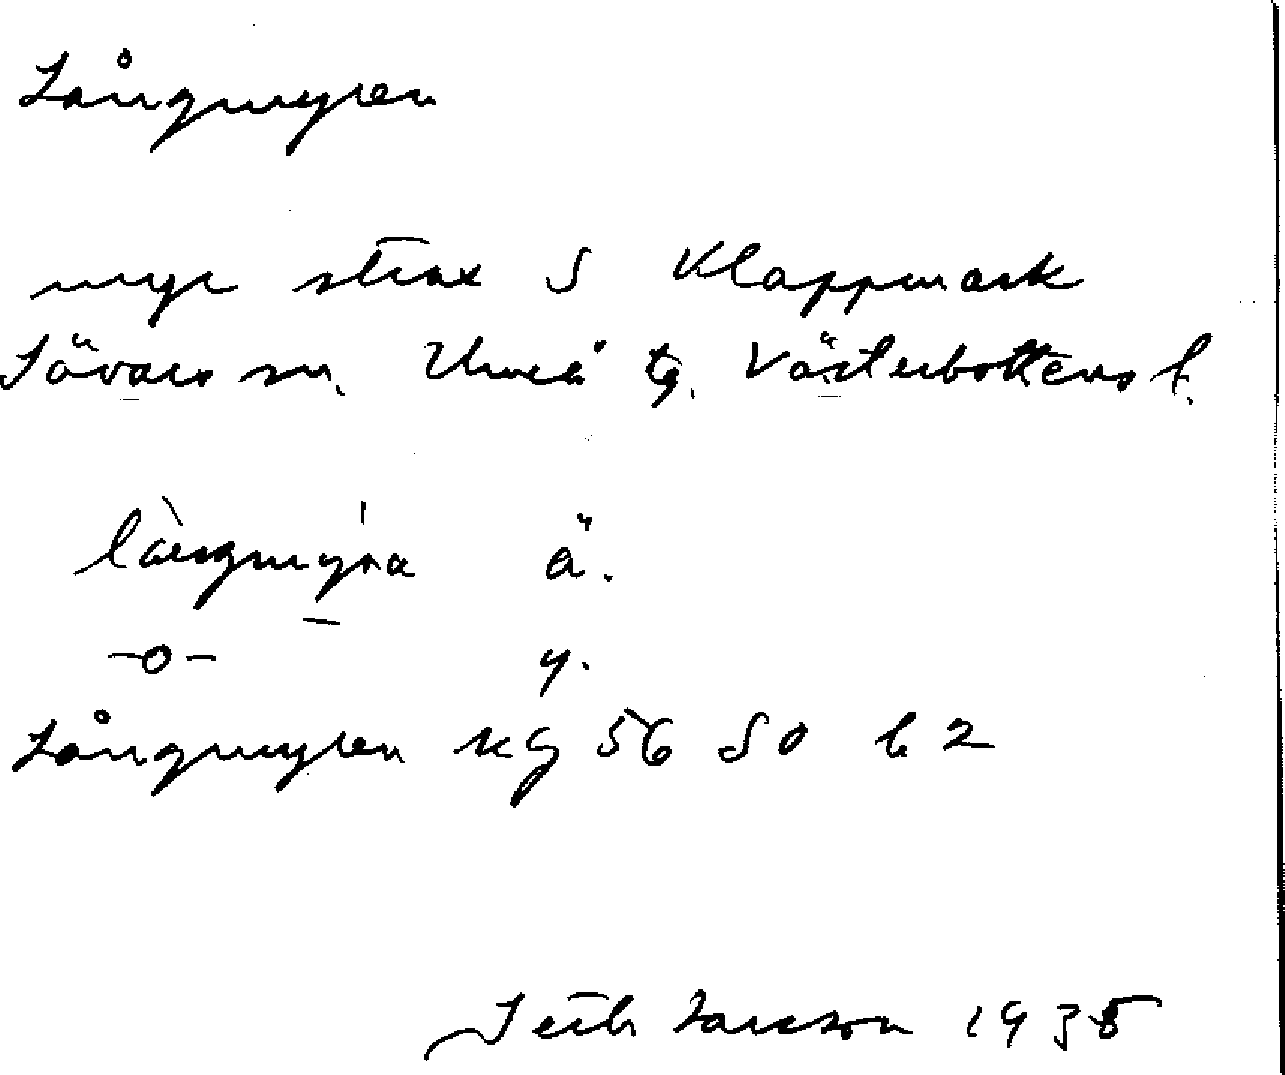 Långmyren
myr strax S Klappmark
Sävars sn. Umeå tg. Västerbottens l.
làngmy̱ra ä.
-o- y.
Långmyren kg 56 SO b 2
Seth Larsson 1935